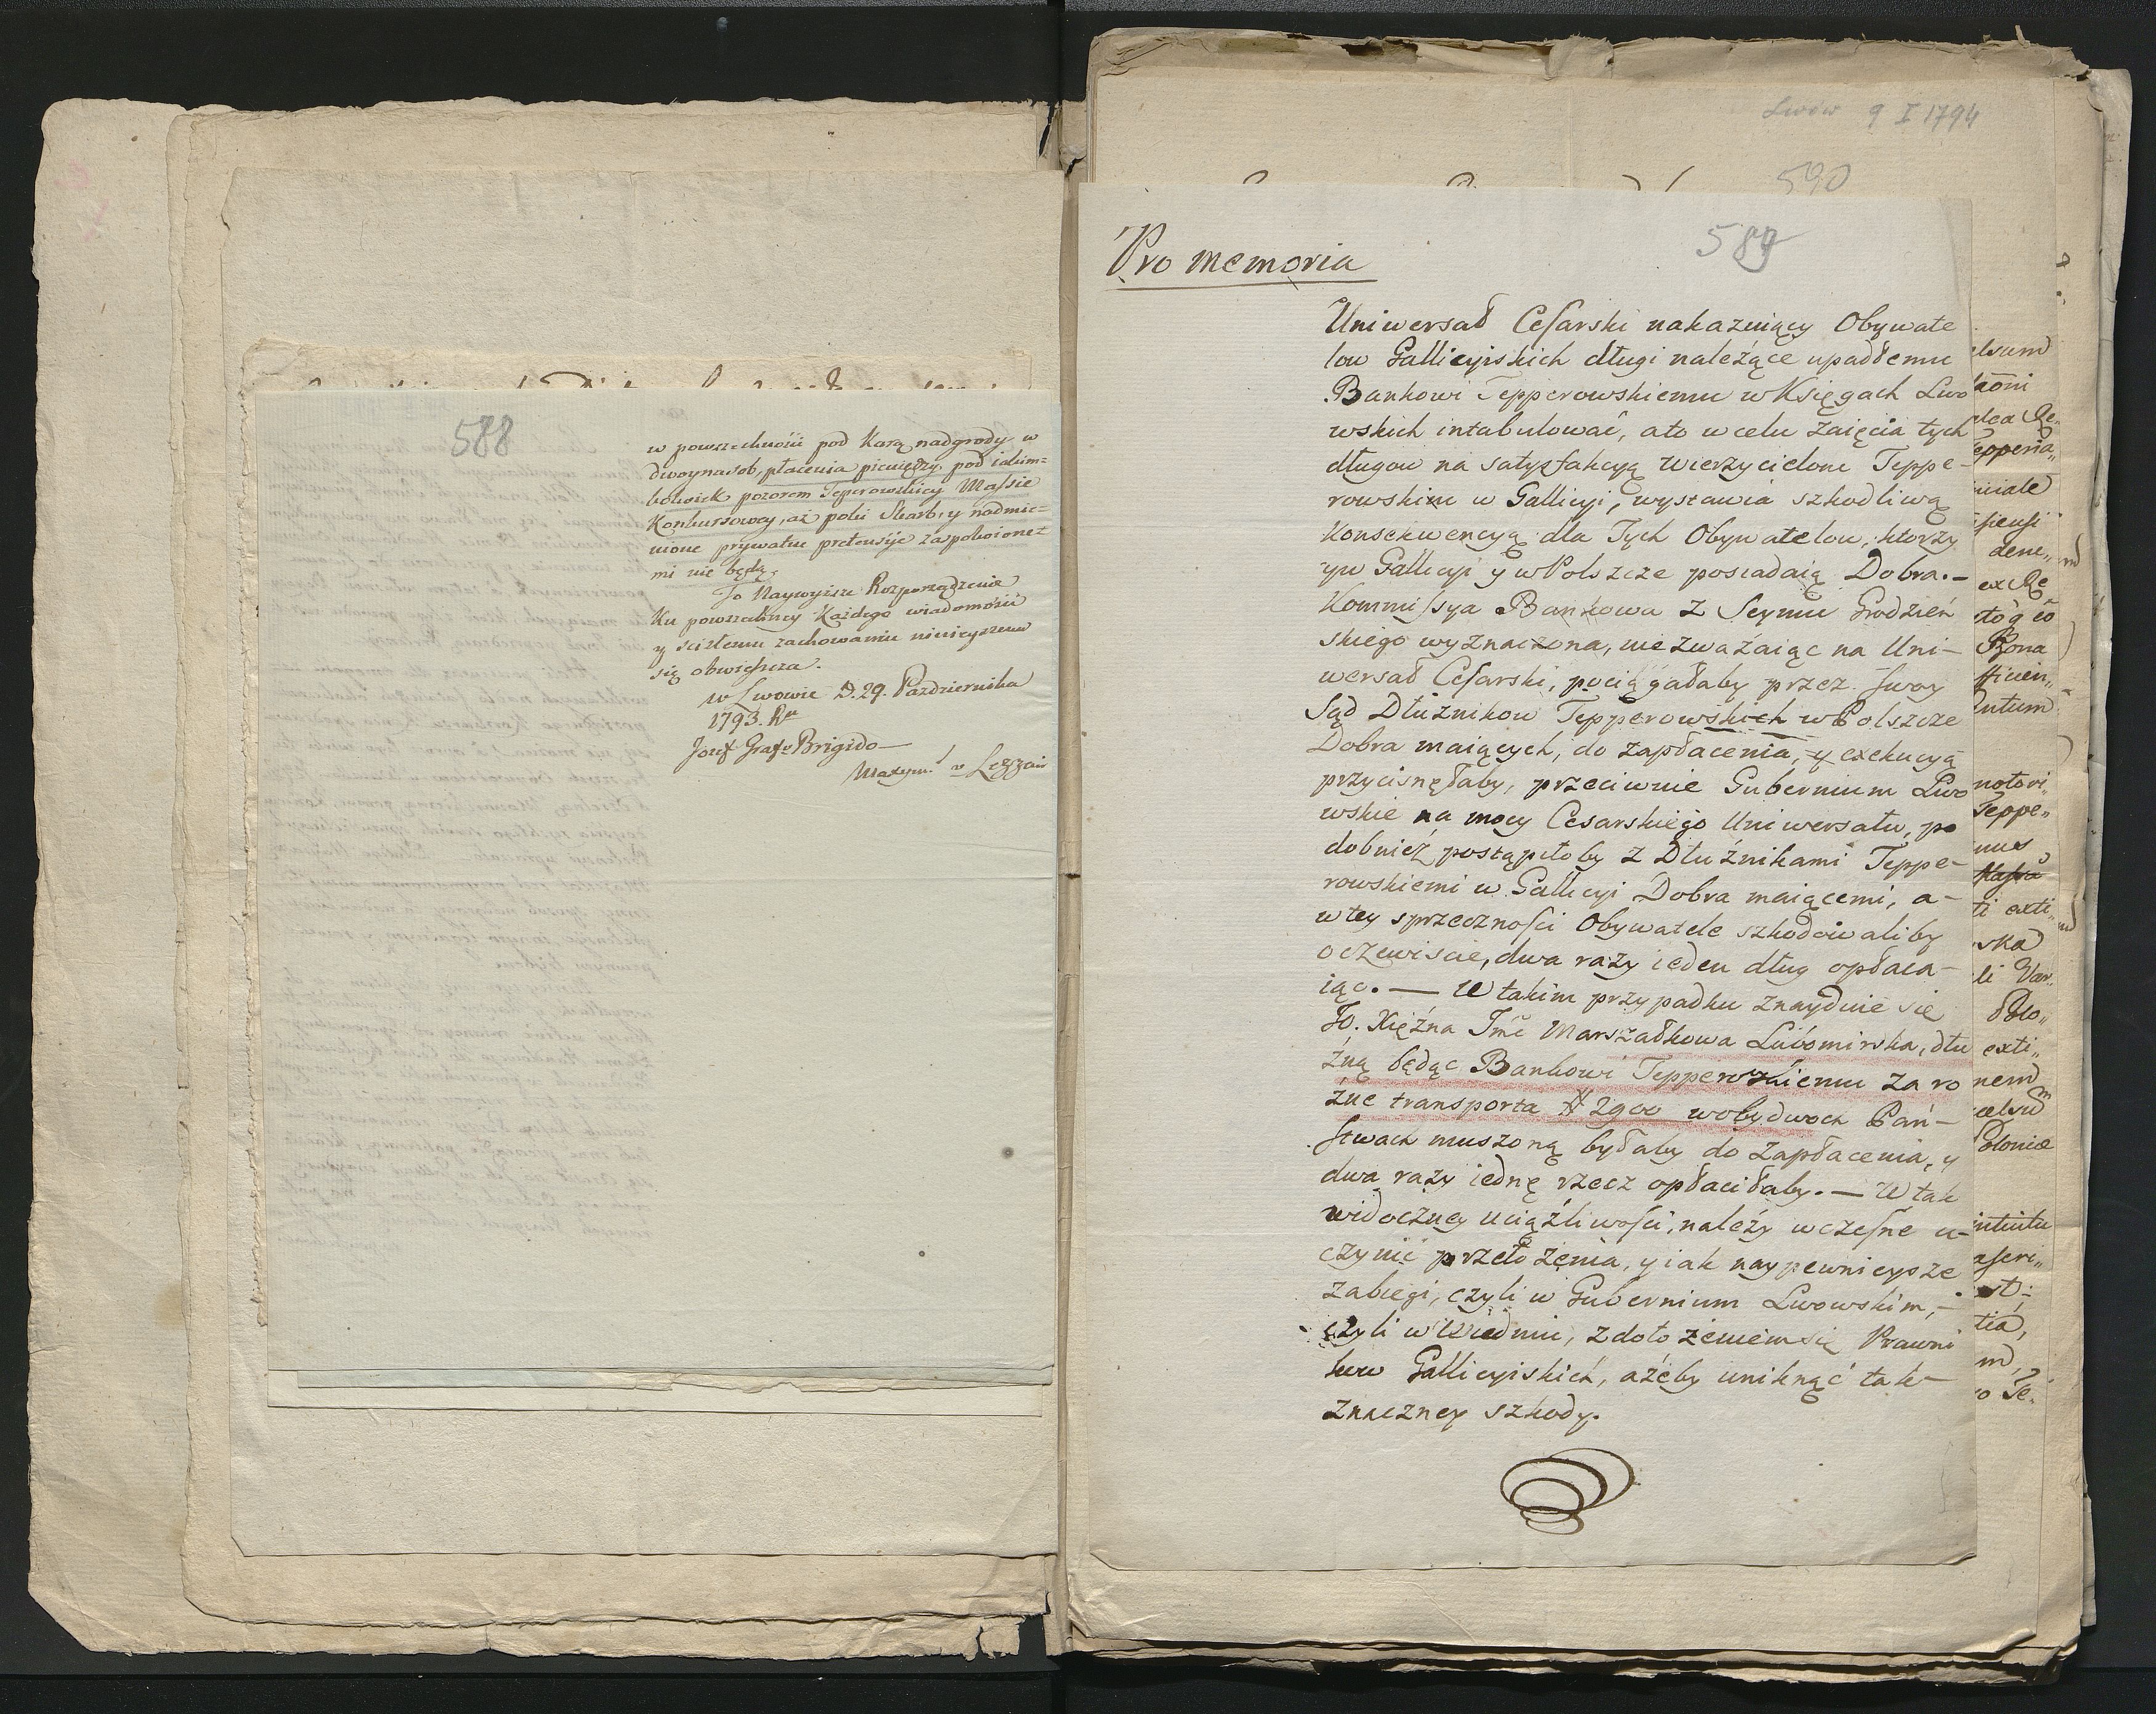 588
w powszechności pod Karą nadgrody w
dwoynasob, płacenia pieniędzy pod iakim=
kolwiek pozorem Teperowskiey Massie
Konkursowey, aż poki Skarb, y nadmie=
nione prywatne pretensye zaspokoione=
mi nie będą.
To Naywyższe Rozporządzenie
Ku powszechney Każdego wiadomości
y scisłemu zachowaniu ninieyszem
się obwieszcza.
w Lwowie D. 29. Pazdziernika
1793. Ru
Jozef Graf Brigido
Lwów 9 I 1794
590
589
Pro memoria
Uniwersał Cesarski nakazuiący Obywate
low Gallicyiskich długi należące upadłemu
Bankowi Tepperowskiemu w Księgach Lwo
wskich intabulować, a to w celu zaięcia tych
długow na satysfakcyą Wierzycielom Teppe-
rowskim w Gallicyi, wystawia szkodliwą
Konsekwencyą dla Tych Obywatelow, ktorzy
y w Gallicyi y w Polszcze posiadaią Dobra.-
Kommissya Bankowa z Seymu Grodzień
skiego wyznaczona, nie zważaiąc na Uni-
wersał Cesarski, pociągałaby przez swoy
Sąd Dłużnikow Tepperowskich w Polszcze
Dobra maiących, do zapłacenia, y exekucyą
przycisnęłaby, przeciwnie Gubernium Lwo
wskie na mocy Cesarskiego Uniwersału, po
dobnież postąpiłoby z Dłużnikami Teppe-
rowskiemi w Gallicyi Dobra maiącemi, a-
w tey sprzeczności Obywatele szkodowaliby
oczewiscie, dwa razy ieden dług opłaca-
iąc. — W takim przypadku znayduie się
JO. Xiężna Jmć Marszałkowa Lubomirska, dłu
żną będąc Bankowi Tepperowskiemu za ro
żne transporta # 2900 w obydwoch Pań-
stwach muszoną byłaby do zapłacenia, y
dwa razy iednę rzecz opłaciłaby. — W tak
widoczney uciążliwości, należy wczesne u-
czynić przełożenia, y iak naypewnieysze
zabiegi, czyli w Gubernium Lwowskim,-
czyli w Wiedniu, z dołożeniem się Prawni
kow Gallicyiskich, ażeby uniknąć tak-
znaczney szkody.